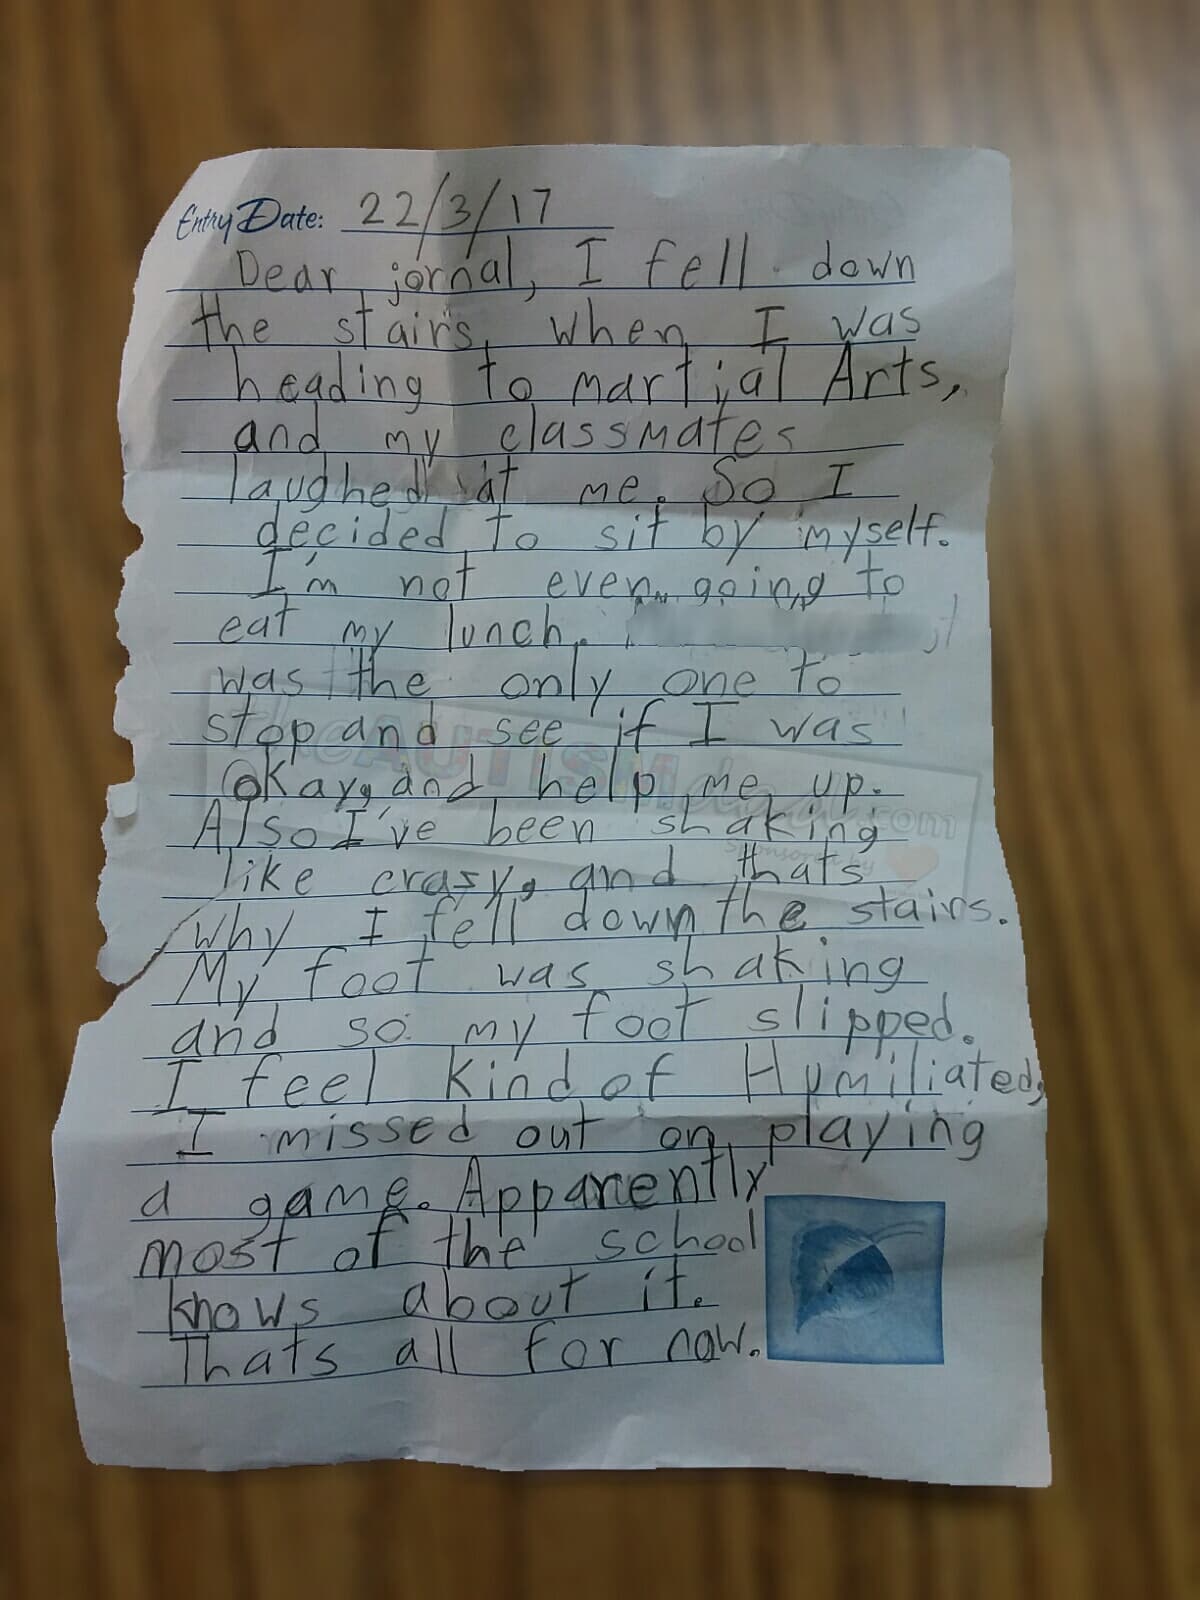 Entry Date: 22/3/17
Dear jornal, I fell down
the stairs, when I was
heading to martial Arts,
and my classmates
laughed at me. So I
decided to sit by myself.
I'm not even going to
eat my lunch.
was the only one to
stop and see if I was
okay, and help me up.
Also I've been shaking
like crasy, and thats
why I fell down the stairs.
My foot was shaking
and so my foot slipped.
I feel kind of Humiliated,
I missed out on playing
a game. Apparently
most of the school
knows about it.
Thats all for now.
theAUTISMdad.com
sponsored by